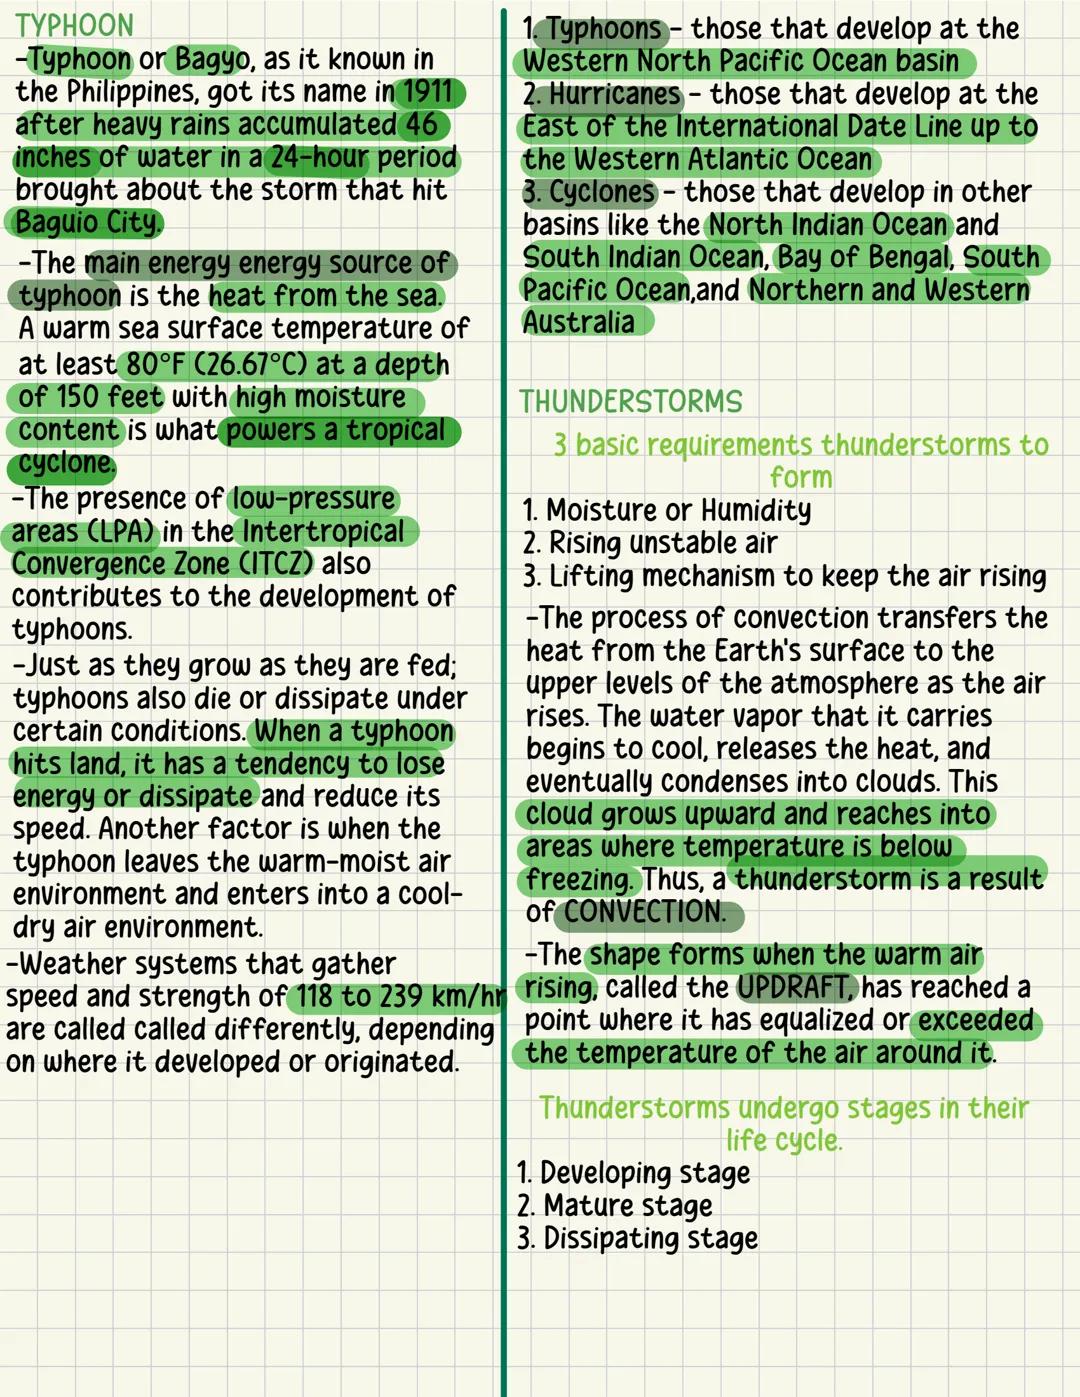 TYPHOON
-Typhoon or Bagyo, as it known in
the Philippines, got its name in 1911
after heavy rains accumulated 46
inches of water in a 24-hour period
brought about the storm that hit
Baguio City.
-The main energy energy source of
typhoon is the heat from the sea.
A warm sea surface temperature of
at least 80°F (26.67°C) at a depth
of 150 feet with high moisture
content is what powers a tropical
cyclone.
-The presence of low-pressure
areas (LPA) in the Intertropical
Convergence Zone (ITCZ) also
contributes to the development of
typhoons.
-Just as they grow as they are fed;
typhoons also die or dissipate under
certain conditions. When a typhoon
hits land, it has a tendency to lose
energy or dissipate and reduce its
speed. Another factor is when the
typhoon leaves the warm-moist air
environment and enters into a cool-
dry air environment.
-Weather systems that gather
speed and strength of 118 to 239 km/hr
are called called differently, depending
on where it developed or originated.
1. Typhoons - those that develop at the
Western North Pacific Ocean basin
2. Hurricanes - those that develop at the
East of the International Date Line up to
the Western Atlantic Ocean
3. Cyclones - those that develop in other
basins like the North Indian Ocean and
South Indian Ocean, Bay of Bengal, South
Pacific Ocean,and Northern and Western
Australia
THUNDERSTORMS
3 basic requirements thunderstorms to
form
1. Moisture or Humidity
2. Rising unstable air
3. Lifting mechanism to keep the air rising
-The process of convection transfers the
heat from the Earth's surface to the
upper levels of the atmosphere as the air
rises. The water vapor that it carries
begins to cool, releases the heat, and
eventually condenses into clouds. This
cloud grows upward and reaches into
areas where temperature is below
freezing. Thus, a thunderstorm is a result
of CONVECTION.
-The shape forms when the warm air
rising, called the UPDRAFT, has reached a
point where it has equalized or exceeded
the temperature of the air around it.
Thunderstorms undergo stages in their
life cycle.
1. Developing stage
2. Mature stage
3. Dissipating stage